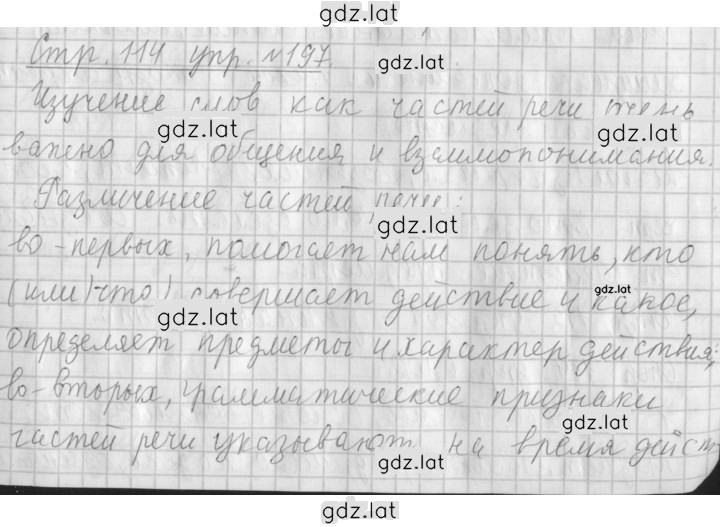 gdz.lat
Стр. 114 упр. №197
Изучение слов как частей речи очень
gdz.lat
gdz.lat
важно для общения и взаимопонимания.
Различение частей речи:
gdz.lat
во-первых, помогает нам понять, кто
(или что) совершает действие и какое,
gdz.lat
gdz.lat
определяет предметы и характер действия;
во-вторых, грамматические признаки
gdz.lat
частей речи указывают на время дейст
gdz.lat
gdz.lat